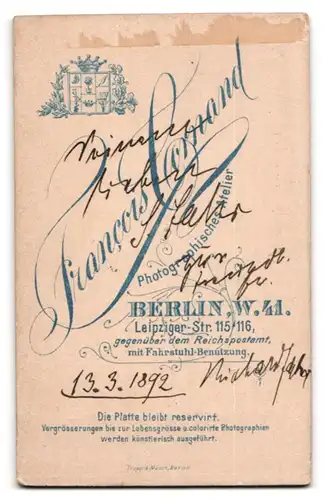 François Cornand
Photographisches Atelier
Meinem
lieben
zur
BERLIN, W. 41.
Leipziger-Str. 115/116,
gegenüber dem Reichspostamt,
mit Fahrstuhl-Benützung.
13.3.1892
Richard
Die Platte bleibt reservirt.
Vergrösserungen bis zur Lebensgrösse u. colorirte Photographien
werden künstlerisch ausgeführt.